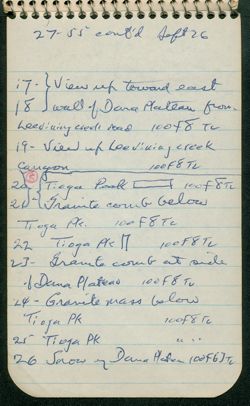 27-55 cont'd Sept 26
17- } View up toward east
18 } wall of Dana Plateau from
Leevining creek road 100 F8 TL
19- View up Leevining creek
Canyon 100 F8 TL
20- Tioga Peak 100 F8 TL
21- Granite comb below
Tioga Pk. 100 F8 TL
22 Tioga Pk 100 F8 TL
23- Granite comb at side
of Dana Plateau 100 F8 TL
24- Granite mass below
Tioga Pk 100 F8 TL
25 Tioga Pk " "
26 Dana Plateau 100 F6.3 TL